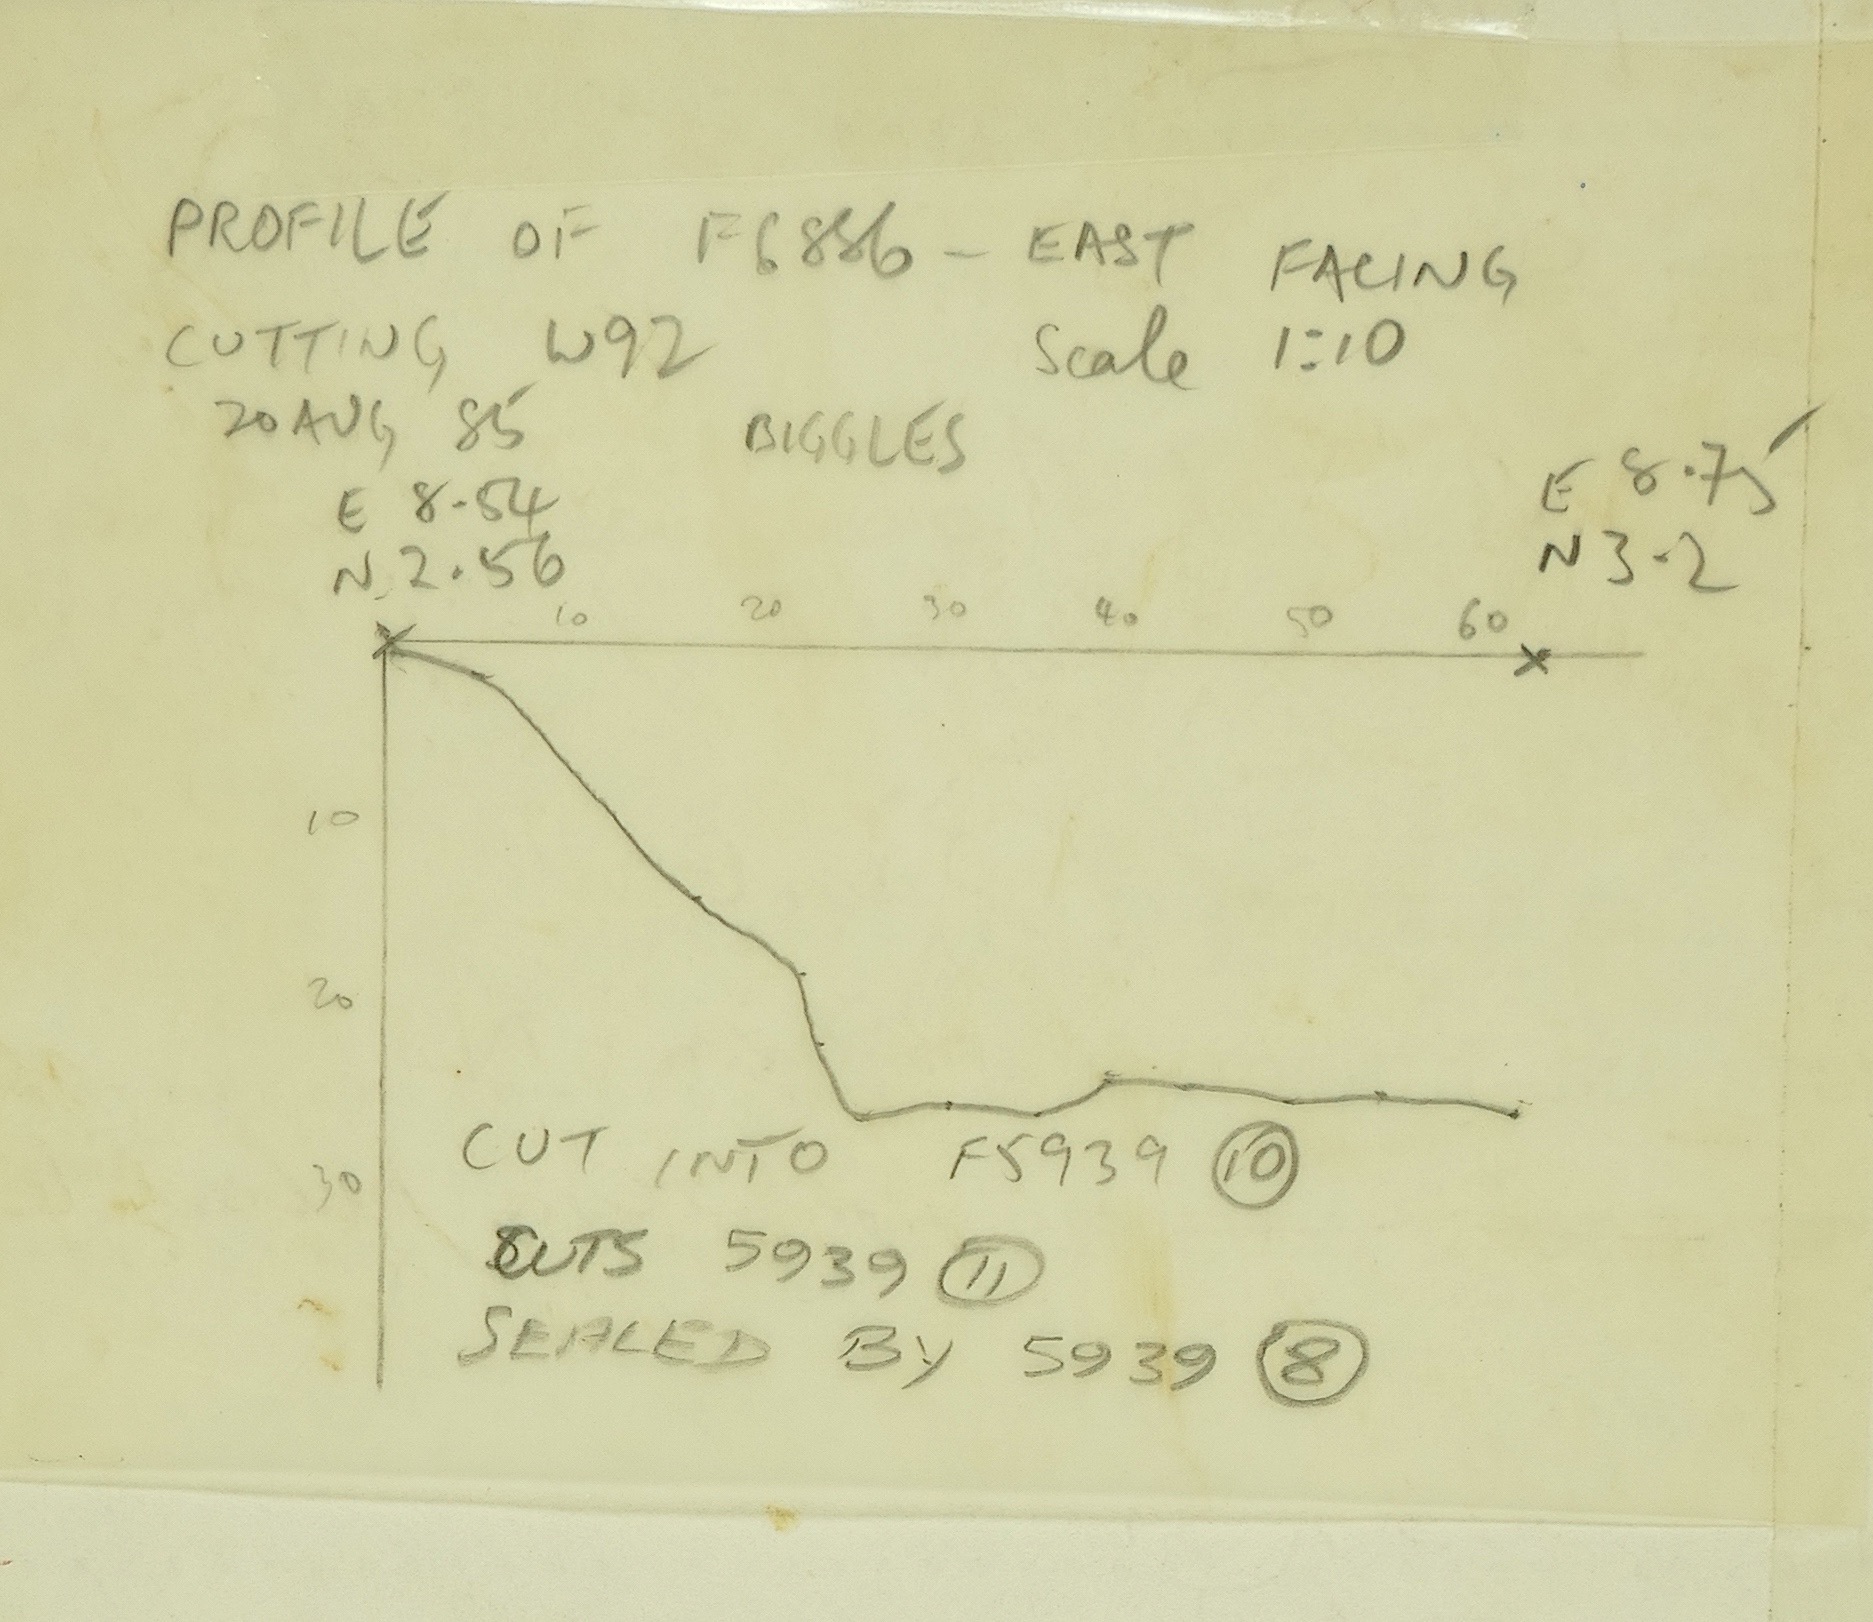 PROFILE OF F6886 - EAST FACING
CUTTING W92 Scale 1:10
20 AUG 85 BIGGLES
E 8.54
N 2.56
E 8.75
N 3.2
10 20 30 40 50 60
10
20
30
CUT INTO F5939 10
CUTS 5939 11
SEALED BY 5939 8